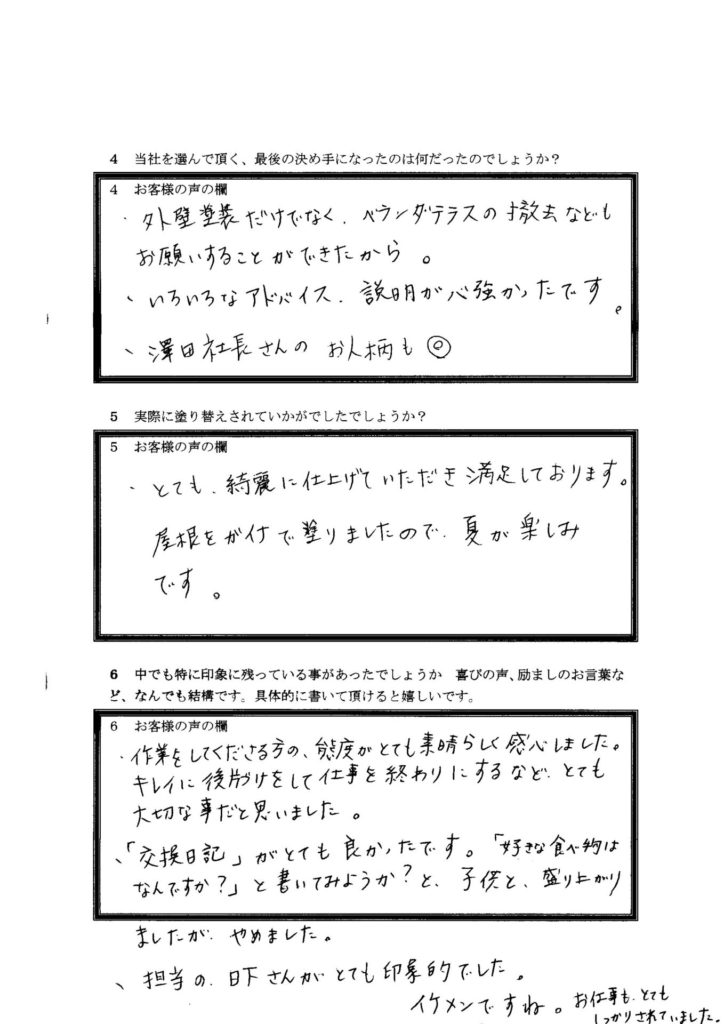 4 当社を選んで頂く、最後の決め手になったのは何だったのでしょうか？
4 お客様の声の欄
・外壁塗装だけでなく、ベランダテラスの撤去なども
お願いすることができたから。
、いろいろなアドバイス、説明が心強かったです。
、澤田社長さんの お人柄も◎
5 実際に塗り替えされていかがでしたでしょうか？
5 お客様の声の欄
・とても、綺麗に仕上げていただき満足しております。
屋根をガイナで塗りましたので、夏が楽しみ
です。
6 中でも特に印象に残っている事があったでしょうか 喜びの声、励ましのお言葉な
ど、なんでも結構です。具体的に書いて頂けると嬉しいです。
6 お客様の声の欄
・作業をしてくださる方の、態度がとても素晴らしく感心しました。
キレイに後片づけをして仕事を終わりにするなど、とても
大切な事だと思いました。
、「交換日記」がとても良かったです。「好きな食べ物は
なんですか？」と書いてみようか？と、子供と、盛り上がり
ましたが、やめました。
、担当の、日下さんがとても印象的でした。
イケメンですね。お仕事も、とても
しっかりされていました。